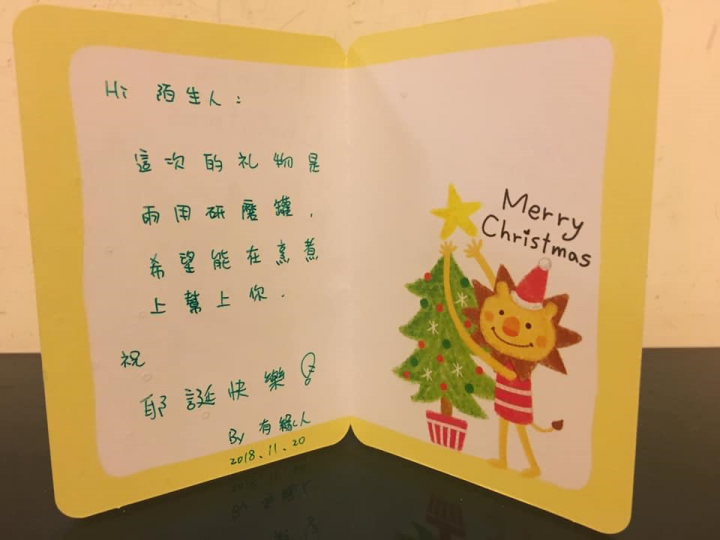 Hi 陌生人：
這次的礼物是
兩用研磨罐，
希望能在烹煮
上幫上你．
祝
耶誕快樂！
By 有緣人
2018.11.20
Merry
Christmas